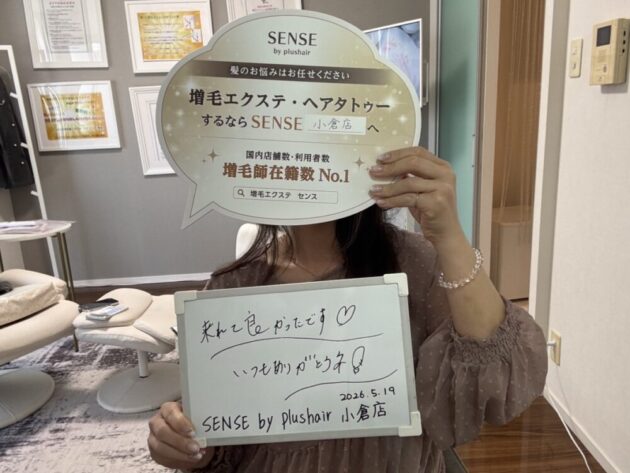 SENSE
by plushair
髪のお悩みはお任せください
増毛エクステ・ヘアタトゥー
するなら SENSE 小倉店 へ
国内店舗数・利用者数
増毛師在籍数 No.1
増毛エクステ センス
来れて良かったです♡
いつもありがとうネ
2026.5.19
SENSE by Plushair 小倉店